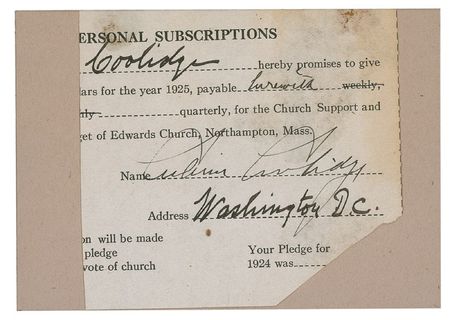 ERSONAL SUBSCRIPTIONS
Coolidge hereby promises to give
ars for the year 1925, payable herewith weekly,
ly quarterly, for the Church Support and
get of Edwards Church, Northampton, Mass.
Name Calvin Coolidge
Address Washington D.C.
on will be made
pledge
vote of church
Your Pledge for
1924 was